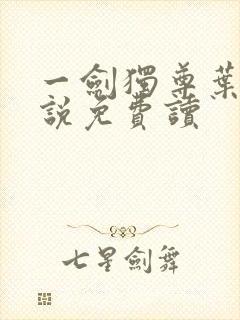 一劍獨尊葉
說免費讀
七星劍舞